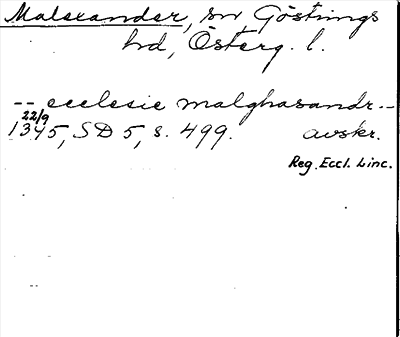 Malexander, sn, Göstrings
hd, Österg. l.
-- ecclesie malghasandr --
22/9
1345, SD 5, s. 499. avskr.
Reg. Eccl. Linc.